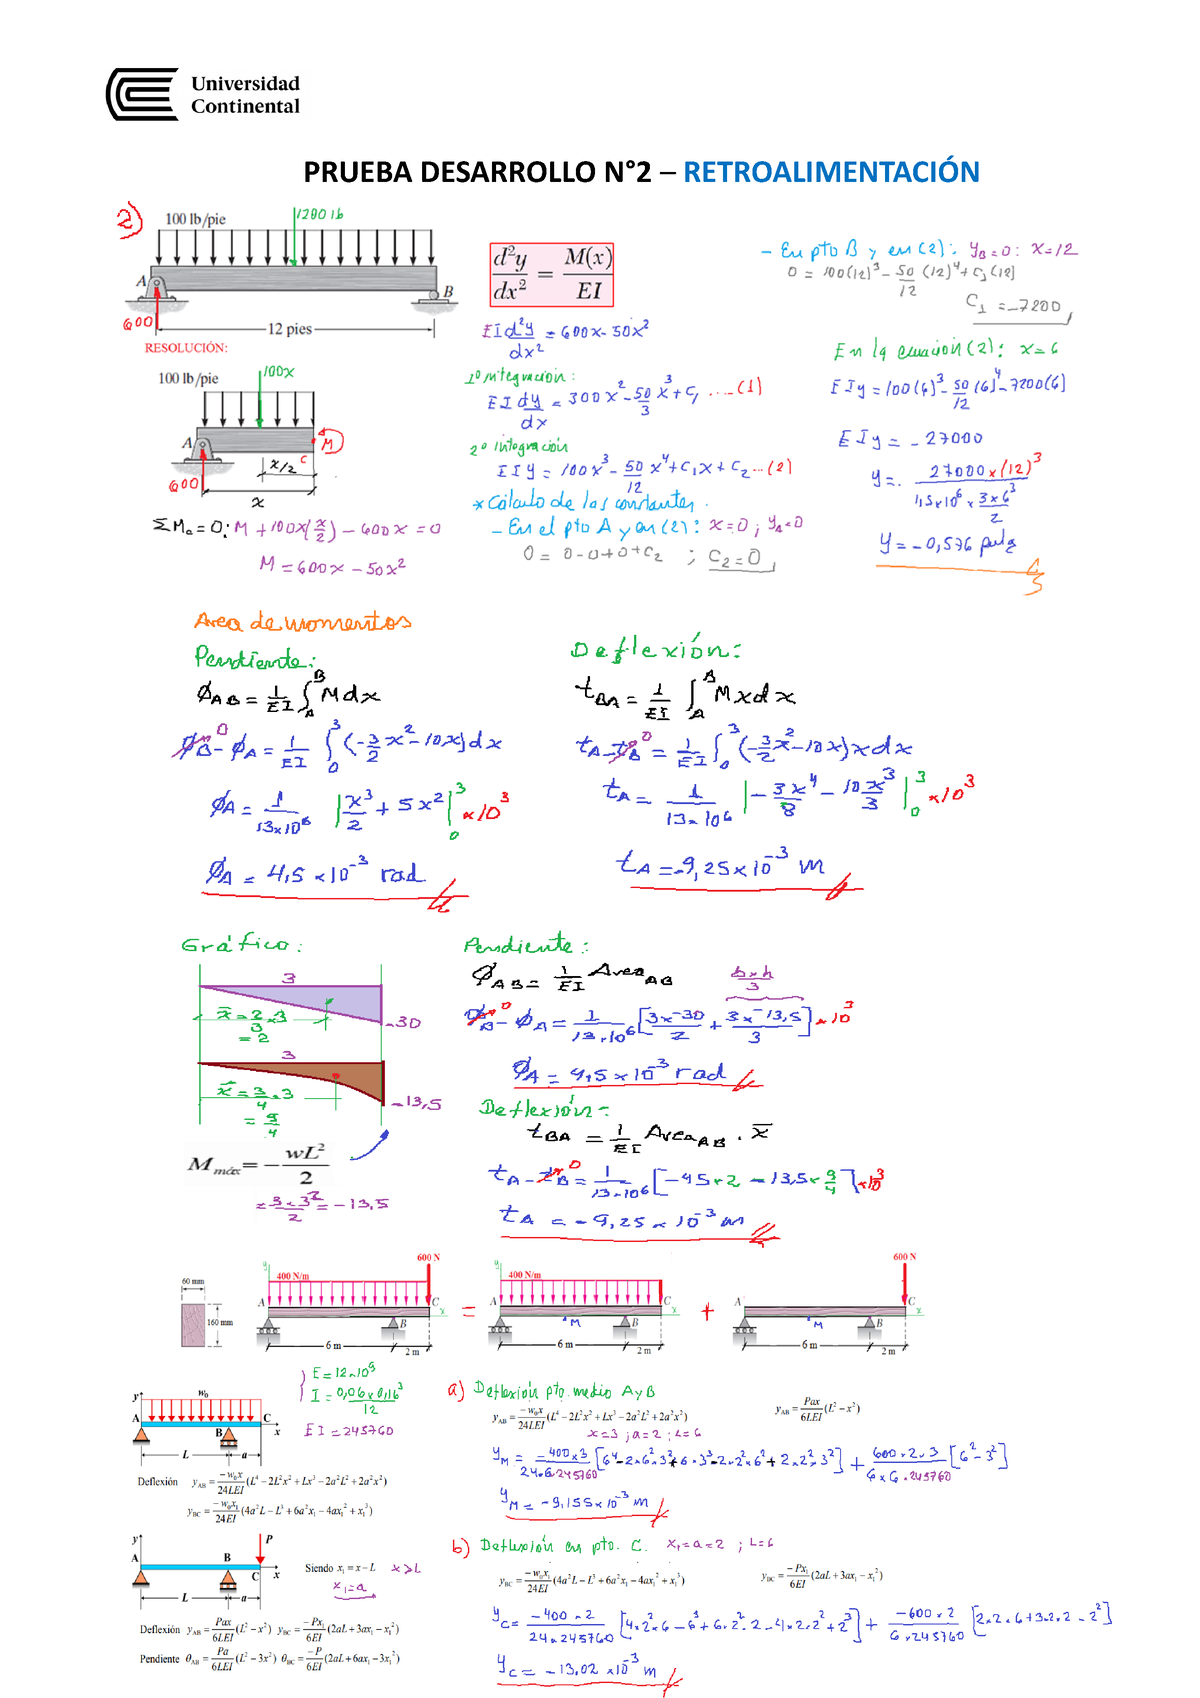 Universidad
Continental
PRUEBA DESARROLLO N°2 – RETROALIMENTACIÓN
2)
100 lb/pie
1200 lb
A
B
600
12 pies
RESOLUCIÓN:
100 lb/pie
100x
A
M
x/2
C
600
x
ΣMa = 0: M + 100x(x/2) – 600x = 0
M = 600x – 50x²
d²y/dx² = M(x)/EI
EI d²y/dx² = 600x - 50x²
1º integración:
EI dy/dx = 300x² - 50/3 x³ + C₁ ....(1)
2º integración
EIY = 100x³ - 50/12 x⁴ + C₁x + C₂ ...(2)
* Cálculo de las constantes.
– En el pto A y en (2): x=0 ; yA=0
0 = 0-0+0+C₂ ; C₂=0
– En pto B y en (2): yB=0: x=12
0 = 100(12)³ - 50/12 (12)⁴ + C₁(12)
C₁ = -7200
En la ecuación (2): x=6
EIy = 100(6)³ - 50/12 (6)⁴ - 7200(6)
EIy = - 27000
y = - 27000 x (12)³ / 1,5x10⁶ x 3x6³/2
y = - 0,576 pulg
Area de momentos
Pendiente:
ϕAB = 1/EI ∫A^B M dx
ϕB⁰ - ϕA = 1/EI ∫0^3 (-3/2 x² - 10x) dx
ϕA = 1/13x10⁶ |x³/2 + 5x²|₀³ x10³
ϕA = 4,5 x10⁻³ rad
Deflexión:
tBA = 1/EI ∫A^B Mxdx
tA - tB⁰ = 1/EI ∫0^3 (-3/2 x² - 10x) x dx
tA = 1/13x10⁶ |- 3x⁴/8 - 10x³/3|₀³ x10³
tA = -9,25x10⁻³ m
Gráfico:
3
x̄ = 2/3 . 3
= 2
-30
3
x̄ = 3/4 . 3
= 9/4
-13,5
Mmáx = – wL²/2
= 3x3²/2 = -13,5
Pendiente:
ϕAB = 1/EI AreaAB
bxh/3
ϕB⁰ - ϕA = 1/13x10⁶ [3x-30/2 + 3x-13,5/3] x10³
ϕA = 4,5x10⁻³ rad
Deflexión:
tBA = 1/EI AreaAB . x̄
tA - tB⁰ = 1/13x10⁶ [-45x2 - 13,5x9/4] x10³
tA = -9,25x10⁻³ m
60 mm
160 mm
y
400 N/m
600 N
A
B
C
x
6 m
2 m
=
y
400 N/m
A
M
B
C
x
6 m
2 m
+
600 N
A
M
B
C
x
6 m
2 m
E = 12x10⁹
I = 0,06x0,16³/12
EI = 245760
y
w₀
A
B
C
x
L
a
Deflexión yAB = –w₀x/24LEI (L⁴ – 2L²x² + Lx³ – 2a²L² + 2a²x²)
yBC = –w₀x₁/24EI (4a²L – L³ + 6a²x₁ – 4ax₁² + x₁³)
y
P
A
B
C
x
L
a
Siendo x₁ = x – L x>L
x₁=a
Deflexión yAB = Pax/6LEI (L² – x²) yBC = –Px₁/6EI (2aL + 3ax₁ – x₁²)
Pendiente θAB = Pa/6LEI (L² – 3x²) θBC = –P/6EI (2aL + 6ax₁ – 3x₁²)
a) Deflexión pto. medio AyB
yAB = –w₀x/24LEI (L⁴ – 2L²x² + Lx³ – 2a²L² + 2a²x²)
yAB = Pax/6LEI (L² – x²)
x=3 ; a=2 ; L=6
yM = -400x3/24.6.245760 [6⁴ - 2x6².3² + 6.3³ - 2x2²x6² + 2x2².3²] + 600.2.3/6x6.245760 [6² - 3²]
yM = -9,155x10⁻³ m
b) Deflexión en pto. C. x₁=a=2 ; L=6
yBC = –w₀x₁/24EI (4a²L – L³ + 6a²x₁ – 4ax₁² + x₁³)
yBC = –Px₁/6EI (2aL + 3ax₁ – x₁²)
yC = -400x2/24x245760 [4x2²x6 - 6³ + 6x2².2 - 4x2x2² + 2³] + -600x2/6x245760 [2x2x6 + 3.2.2 - 2²]
yC = -13.02 x10⁻³ m